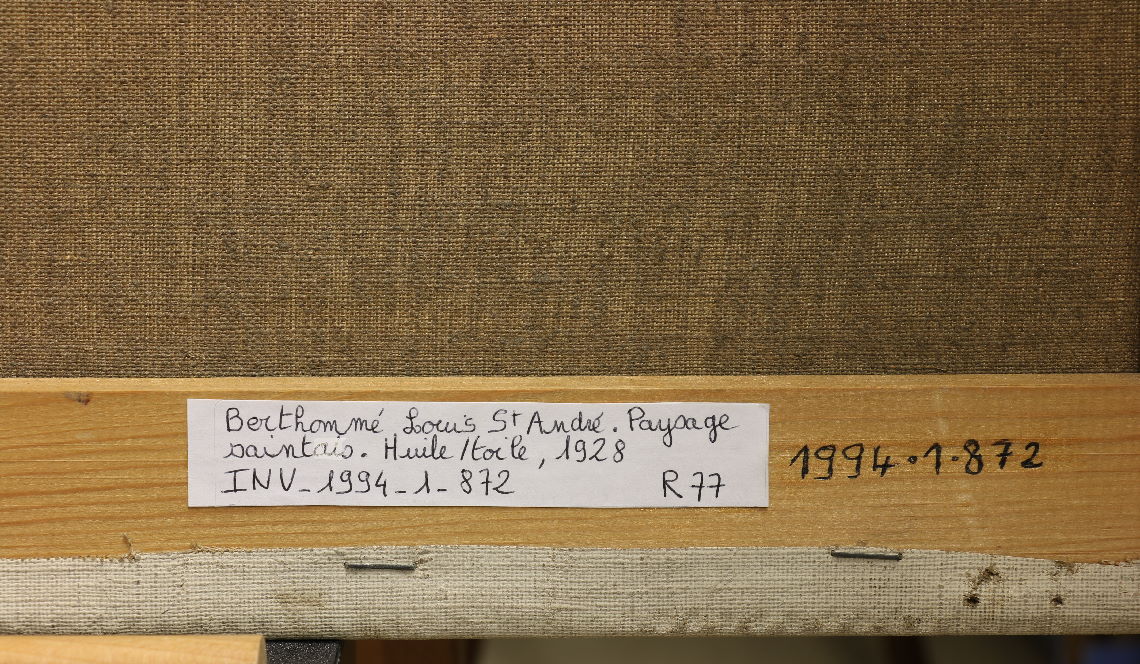 Berthommé Louis St André. Paysage
saintais. Huile/toile, 1928
INV_1994_1_872 R77
1994.1.872